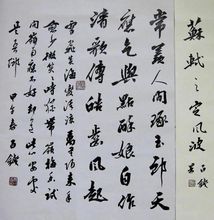 蘇軾之定風波
常羨人間琢玉郎天
應乞與點酥娘自作
清歌傳皓齒風起
雪飛炎海變清涼萬里歸來年
愈少微笑笑時猶帶嶺梅香試
問嶺南應不好却道此心安處
是吾鄉 甲午春